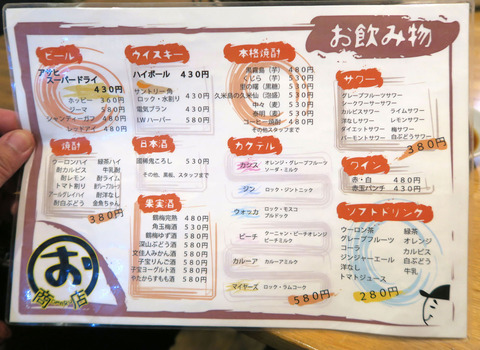 お飲み物
ビール
アサヒ
スーパードライ
430円
ホッピー 360円
ジーマ 580円
シャンディーガフ 480円
レッドアイ 480円
焼酎
ウーロンハイ 緑茶ハイ
酎カルピス 牛乳酎
酎レモン 酎ライム
トマト割り
アールグレイハイ 酎洋なし
酎白ぶどう 金魚ちゃん
380円
お
商店
ウイスキー
ハイボール 430円
サントリー角
ロック・水割り 430円
電気ブラン 480円
I.W ハーパー 580円
日本酒
国稀鬼ころし 530円
その他、黒板、スタッフまで
果実酒
鶴梅完熟 480円
角玉梅酒 530円
鶴梅ゆず酒 580円
深山ぶどう酒 580円
文佳人みかん酒 580円
子宝りんご酒 580円
子宝ヨーグルト酒 580円
やたからすもも酒 580円
本格焼酎
黒霧島(芋) 480円
くじら(芋) 530円
里の曙(黒糖) 530円
久米島の久米仙(泡盛) 530円
中々(麦) 530円
壱岐(麦) 530円
コーヒー焼酎 480円
その他スタッフまで
カクテル
カシス オレンジ・グレープフルーツ
ソーダ・ミルク
ジン ロック・ジントニック
ウォッカ ロック・モスコ
ブルドック
ピーチ ウーニャン・ピーチオレンジ
ピーチミルク
カルーア カルーアミルク
マイヤーズ ロック・ラムコーク
580円
サワー
グレープフルーツサワー
シークワーサーサワー
カルピスサワー ライムサワー
洋なしサワー レモンサワー
ダイエットサワー 梅サワー
パーモントサワー 白ぶどうサワー
380円
ワイン
赤・白 480円
赤玉パンチ 430円
ソフトドリンク
ウーロン茶 緑茶
グレープフルーツ オレンジ
コーラ カルピス
ジンジャーエール 白ぶどう
洋なし 牛乳
トマトジュース
280円